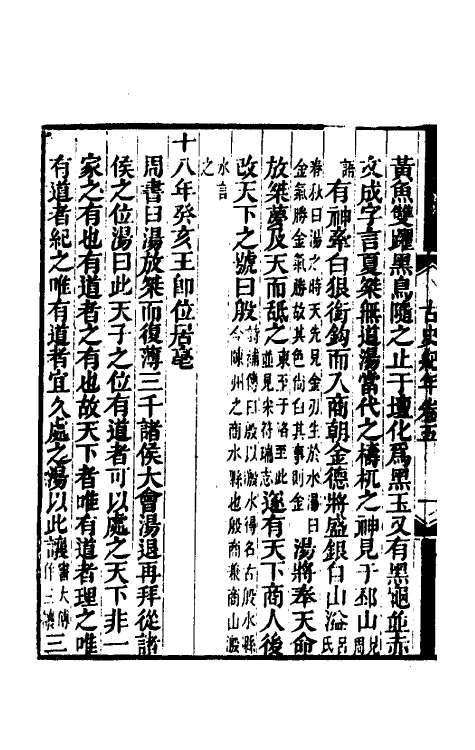 古史紀年 卷五
黃魚雙躍黑鳥隨之止于壇化爲黑玉又有黑龜並赤
文成字言夏桀無道湯當代之檮杌之神見于邳山見周
語有神牽白狼銜鉤而入商朝金德將盛銀自山溢呂氏
春秋曰湯之時天先見金刃生於水湯曰金氣勝金氣勝故其色尙白其事則金湯將奉天命
放桀夢及天而䑛之東至于洛至此並見宋符瑞志遂有天下商人後
改天下之號曰殷
水言之
十八年癸亥王卽位居亳
周書曰湯放桀而復薄三千諸侯大會湯退再拜從諸
侯之位湯曰此天子之位有道者可以處之天下非一
家之有也有道者之有也故天下者唯有道者理之唯
有道者紀之唯有道者宜久處之湯以此讓三